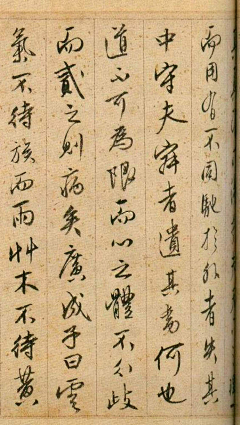 而用有不周馳於外者失其
中守夫寂者遺其當何也
道不可為限而心之體不分歧
而貳之則病矣廣成子曰雲
氣不待族而雨艸木不待黃